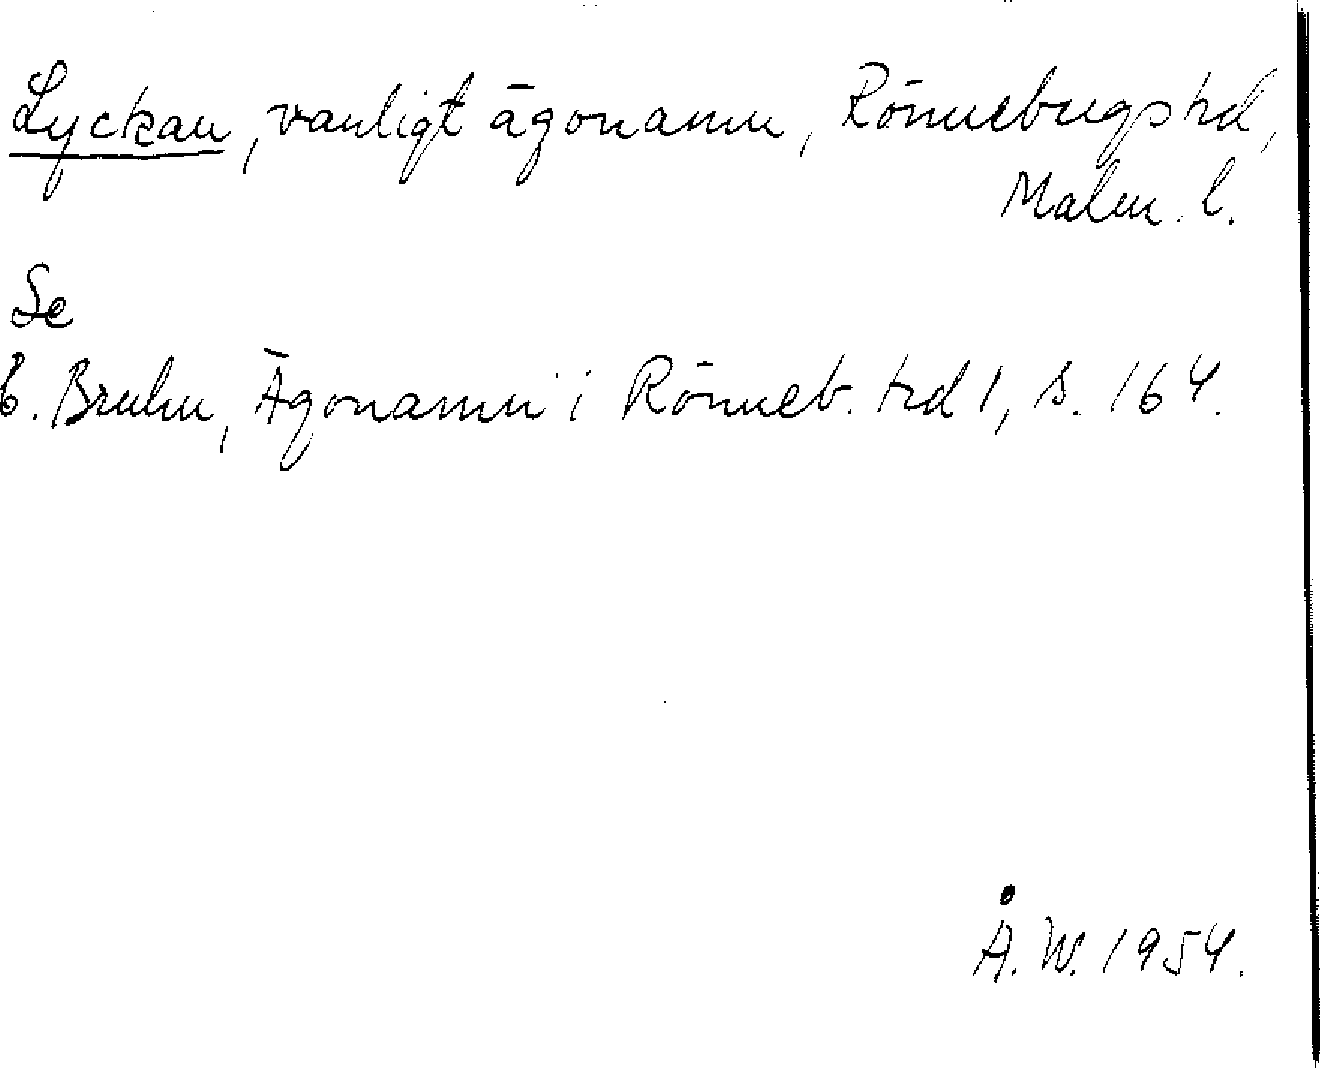 Lyckan, vanligt ägonamn, Rönnebergs hd,
Malm. l.
Se
E. Bruhn, Ägonamn i Rönneb. hd 1, s. 164.
Å. W. 1954.